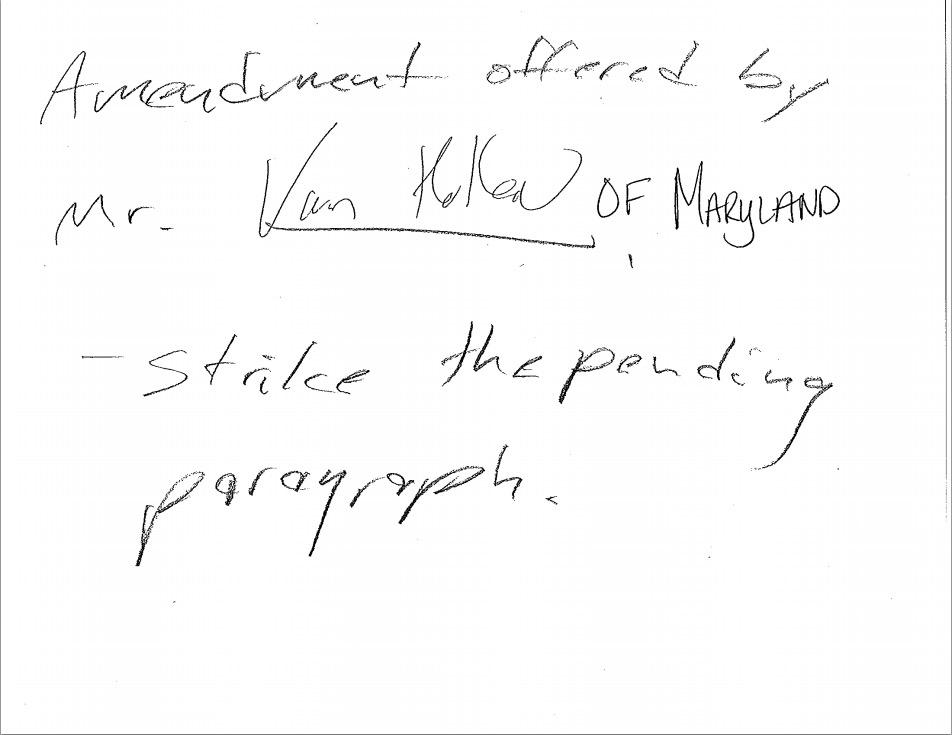 Amendment offered by
Mr. Van Hollen OF MARYLAND
- strike the pending
paragraph.